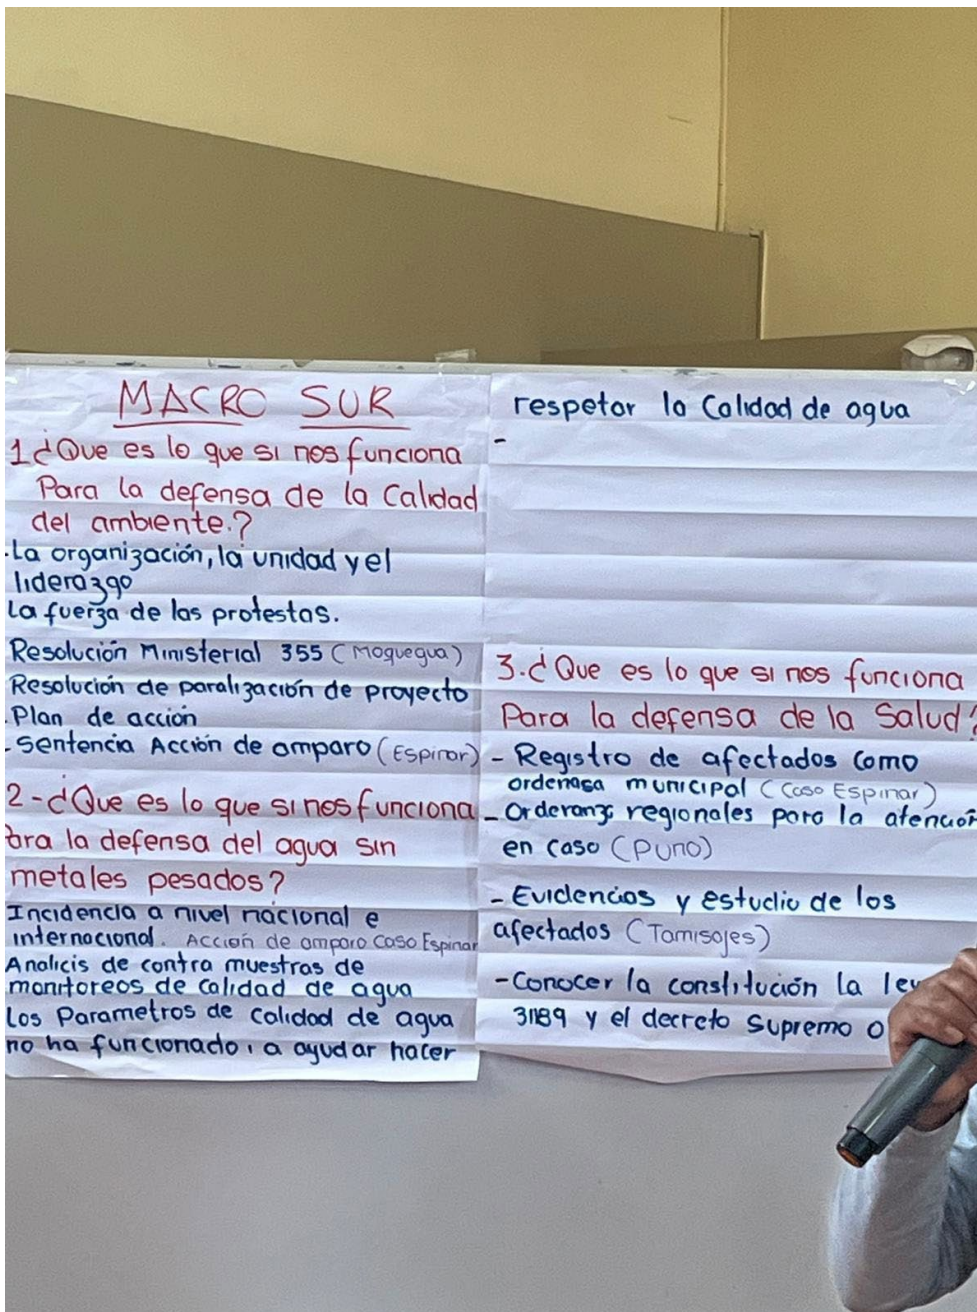 MACRO SUR
1 ¿Que es lo que si nos funciona
Para la defensa de la Calidad
del ambiente.?
.La organización, la unidad y el
liderazgo
La fuerza de las protestas.
Resolución Ministerial 355 (Moquegua)
Resolución de paralización de proyecto
.Plan de acción
-Sentencia Acción de amparo (Espinar)
2-¿Que es lo que si nos funciona
Para la defensa del agua sin
metales pesados?
Incidencia a nivel nacional e
internacional. Acción de amparo Caso Espinar
Analicis de contra muestras de
monitoreos de calidad de agua
Los Parametros de calidad de agua
no ha funcionado, a ayudar hacer
respetar la Calidad de agua
-
3.¿Que es lo que si nos funciona
Para la defensa de la Salud?
- Registro de afectados como
ordenasa municipal (Caso Espinar)
- Orderanz regionales para la atención
en caso (Puno)
- Evidencias y estudio de los
afectados (Tamisajes)
- Conocer la constitución la ley
31189 y el decreto Supremo